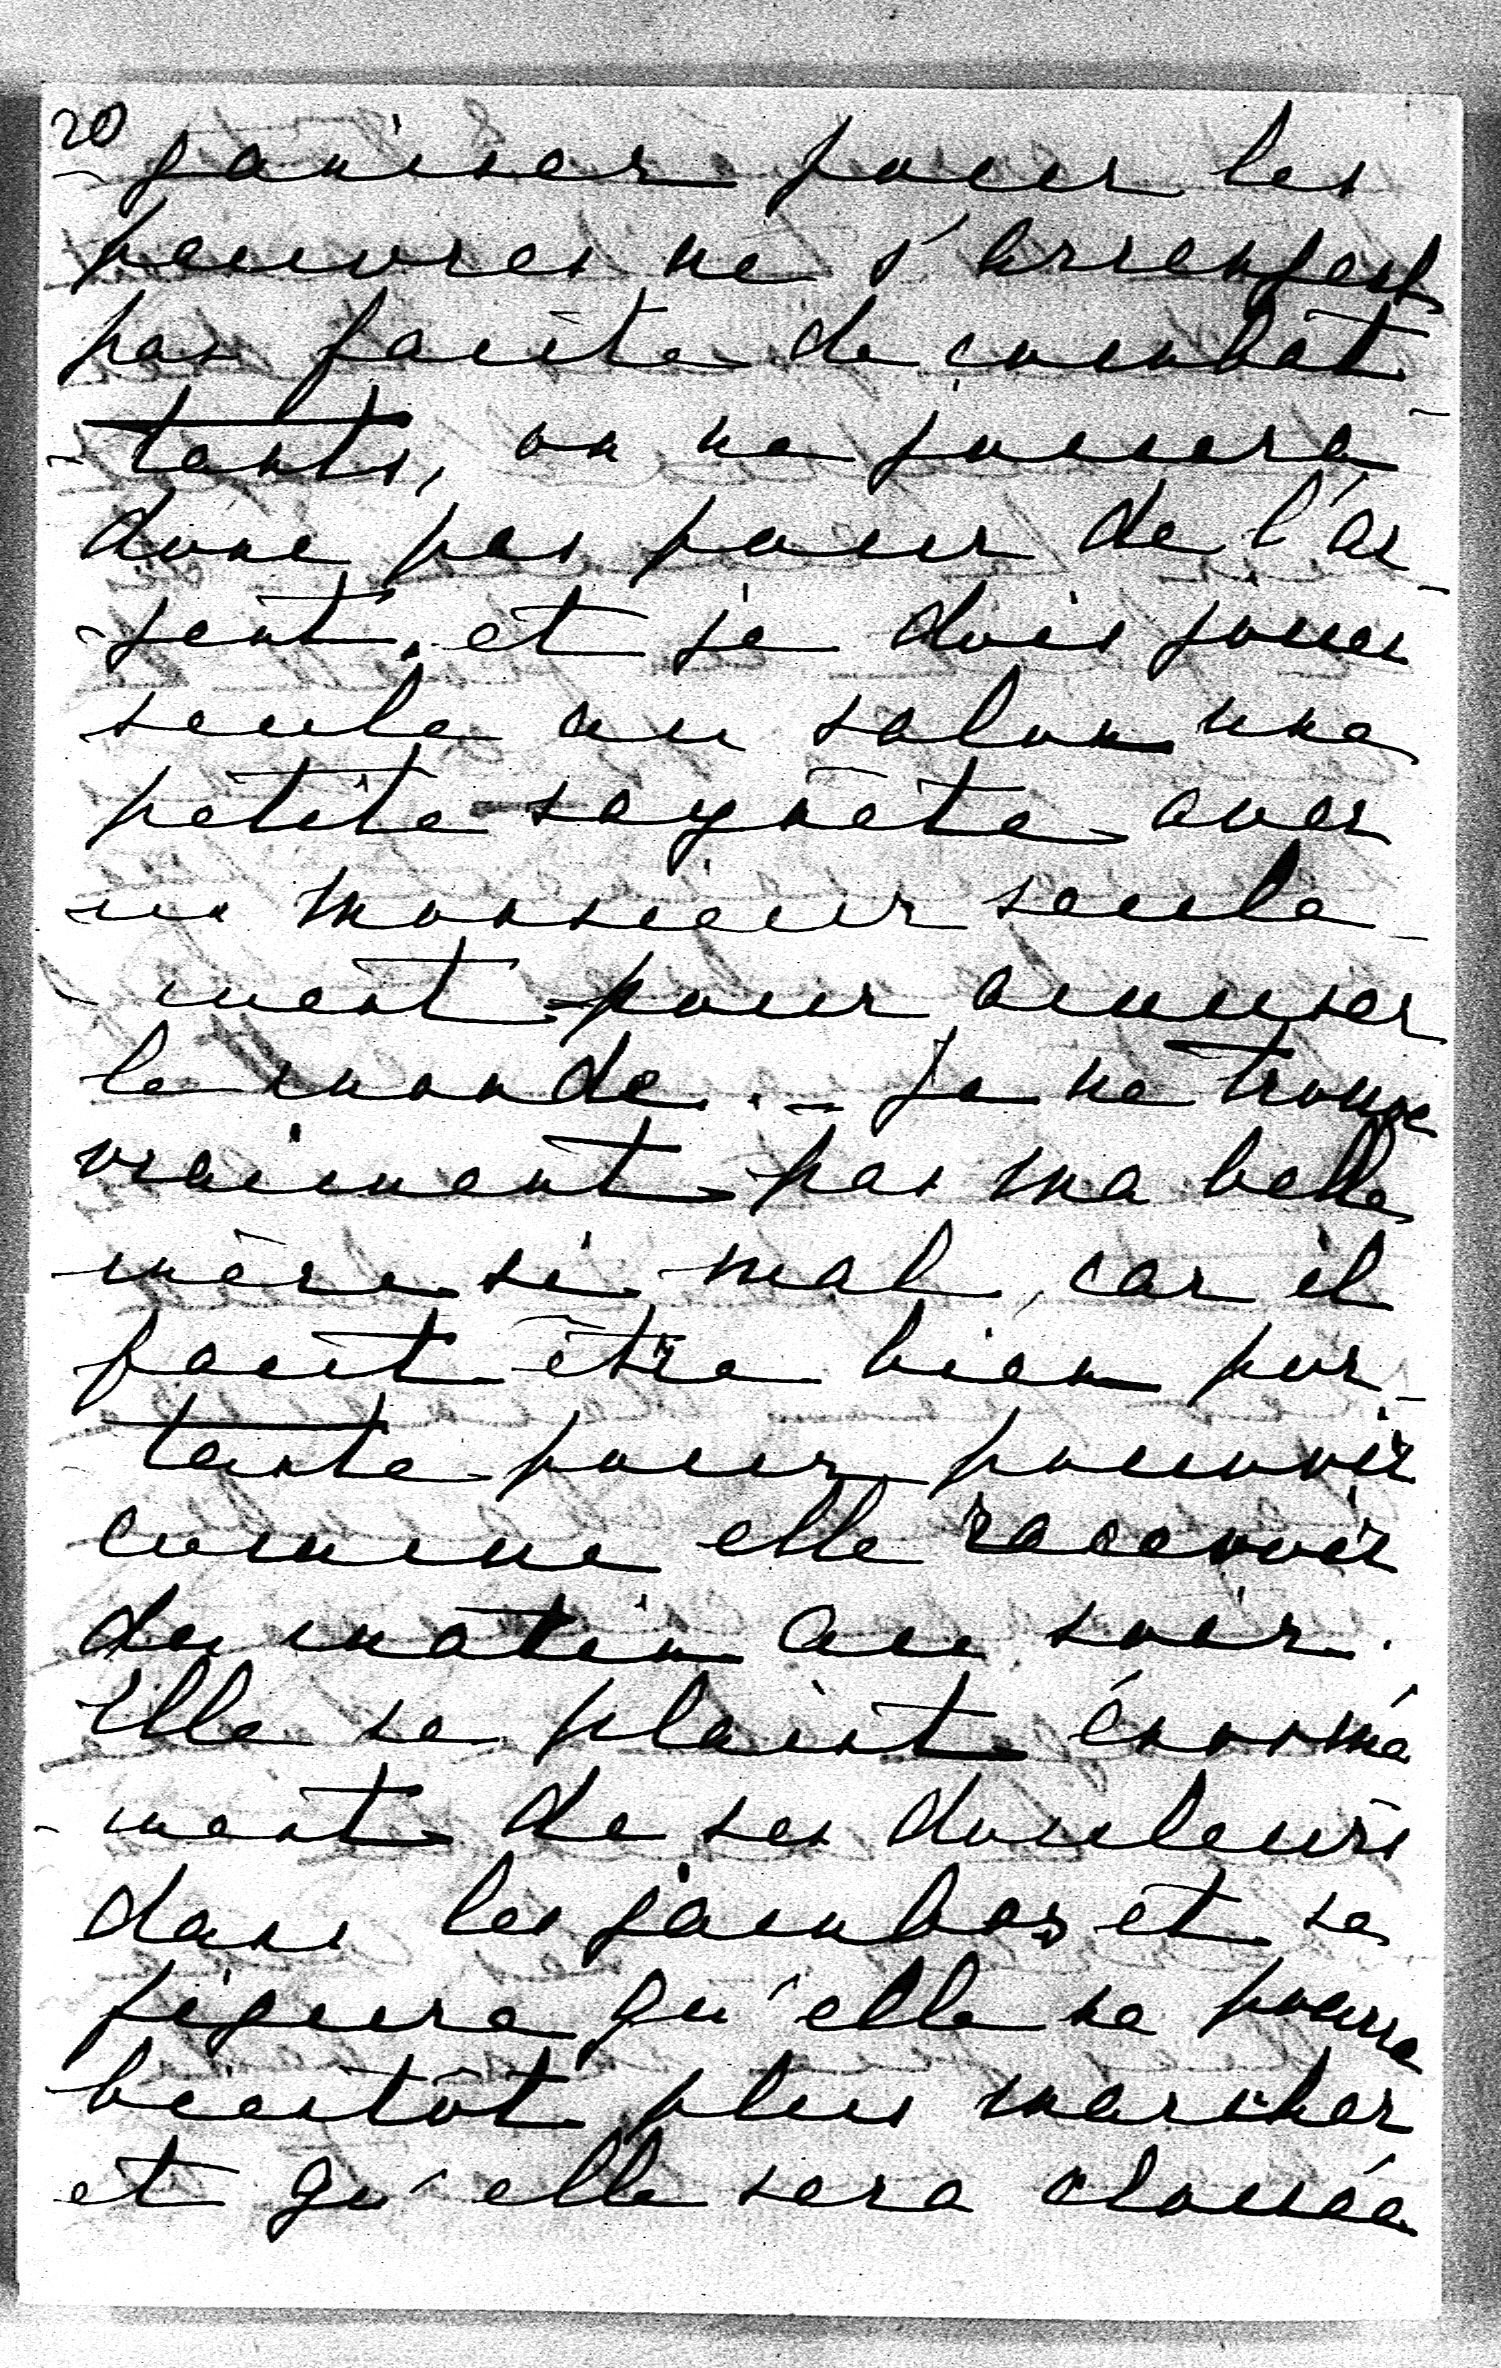 20
-ganiser pour les
pauvres ne s'arrangent
pas faute de combat-
-tants, on ne jouera
donc pas pour de l'ar-
-gent, et je dois jouer
seule au salon une
petite saynète avec
un monsieur seule-
-ment pour amuser
le monde. - Je ne trouve
vraiment pas ma belle
mère si mal, car il
faut être bien por-
tante pour pouvoir
comme elle recevoir
du matin au soir.
Elle se plaint énormé
-ment de ses douleurs
dans les jambes et se
figure qu'elle ne pourra
bientôt plus marcher
et qu'elle sera clouée